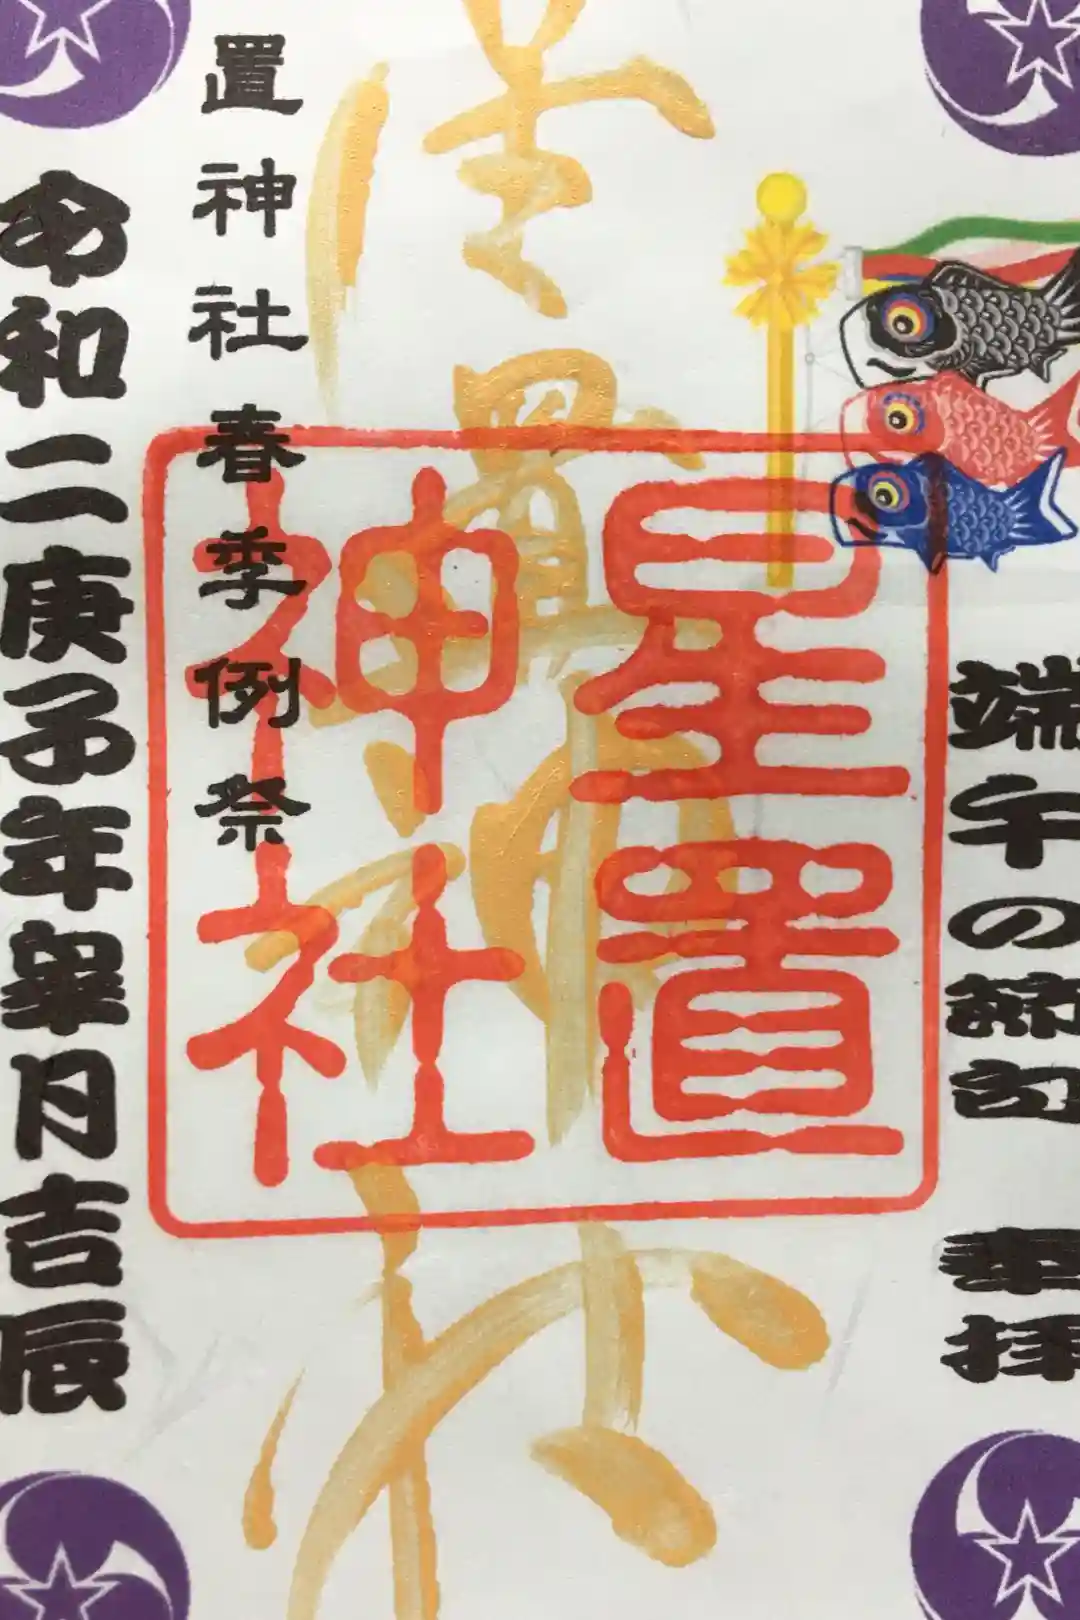 端午の節句 奉拝
星置
神社
星置神社
置神社春季例祭
令和二庚子年皐月吉辰